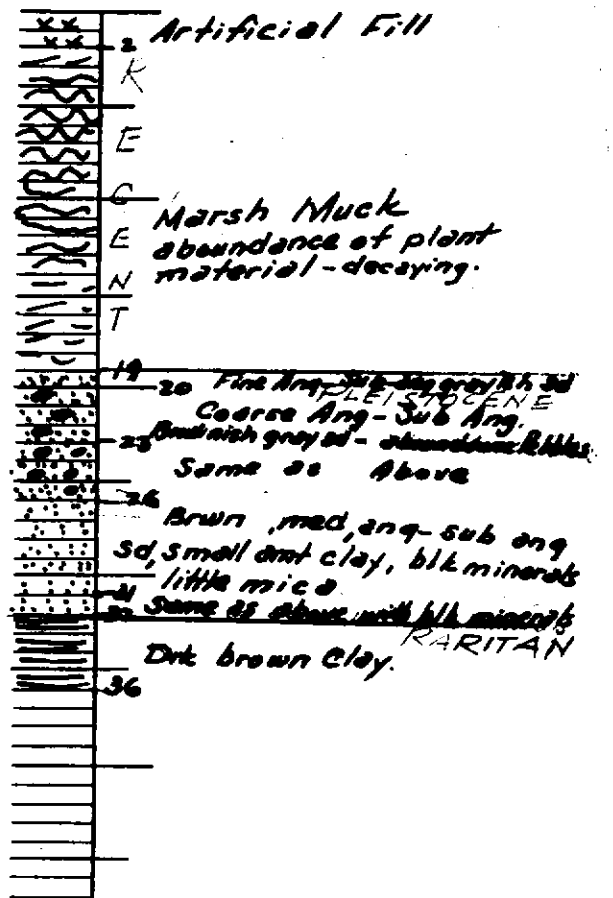 Artificial Fill
2
R
E
C
E
N
T
Marsh Muck
abundance of plant
material - decaying.
19
20 Fine Ang-Sub-ang grayish sd
PLEISTOCENE
Coarse Ang-Sub Ang.
23 Brownish gray sd - abundance
Same as Above
26
Brwn, med, ang-sub ang
sd, small amt clay, blk minerals
little mica
31
Same as above with blk minerals
RARITAN
Drk brown Clay.
36